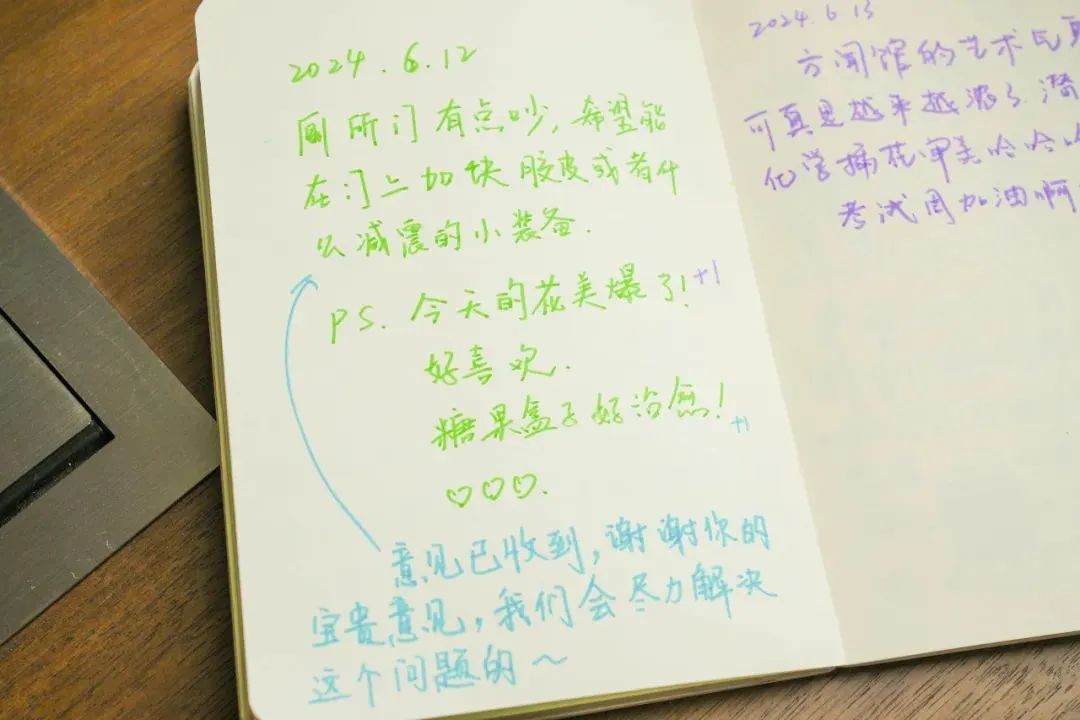 2024.6.12
厕所门有点吵,希望能
在门上加块胶皮或者什
么减震的小装备.
PS. 今天的花美爆了! +1
好喜欢.
糖果盒子好治愈! +1
♡♡♡.
意见已收到,谢谢你的
宝贵意见,我们会尽力解决
这个问题的~
2024.6.13
方闻馆的艺术气
可真是越来越浓了.
化学插花审美哈哈
考试周加油啊